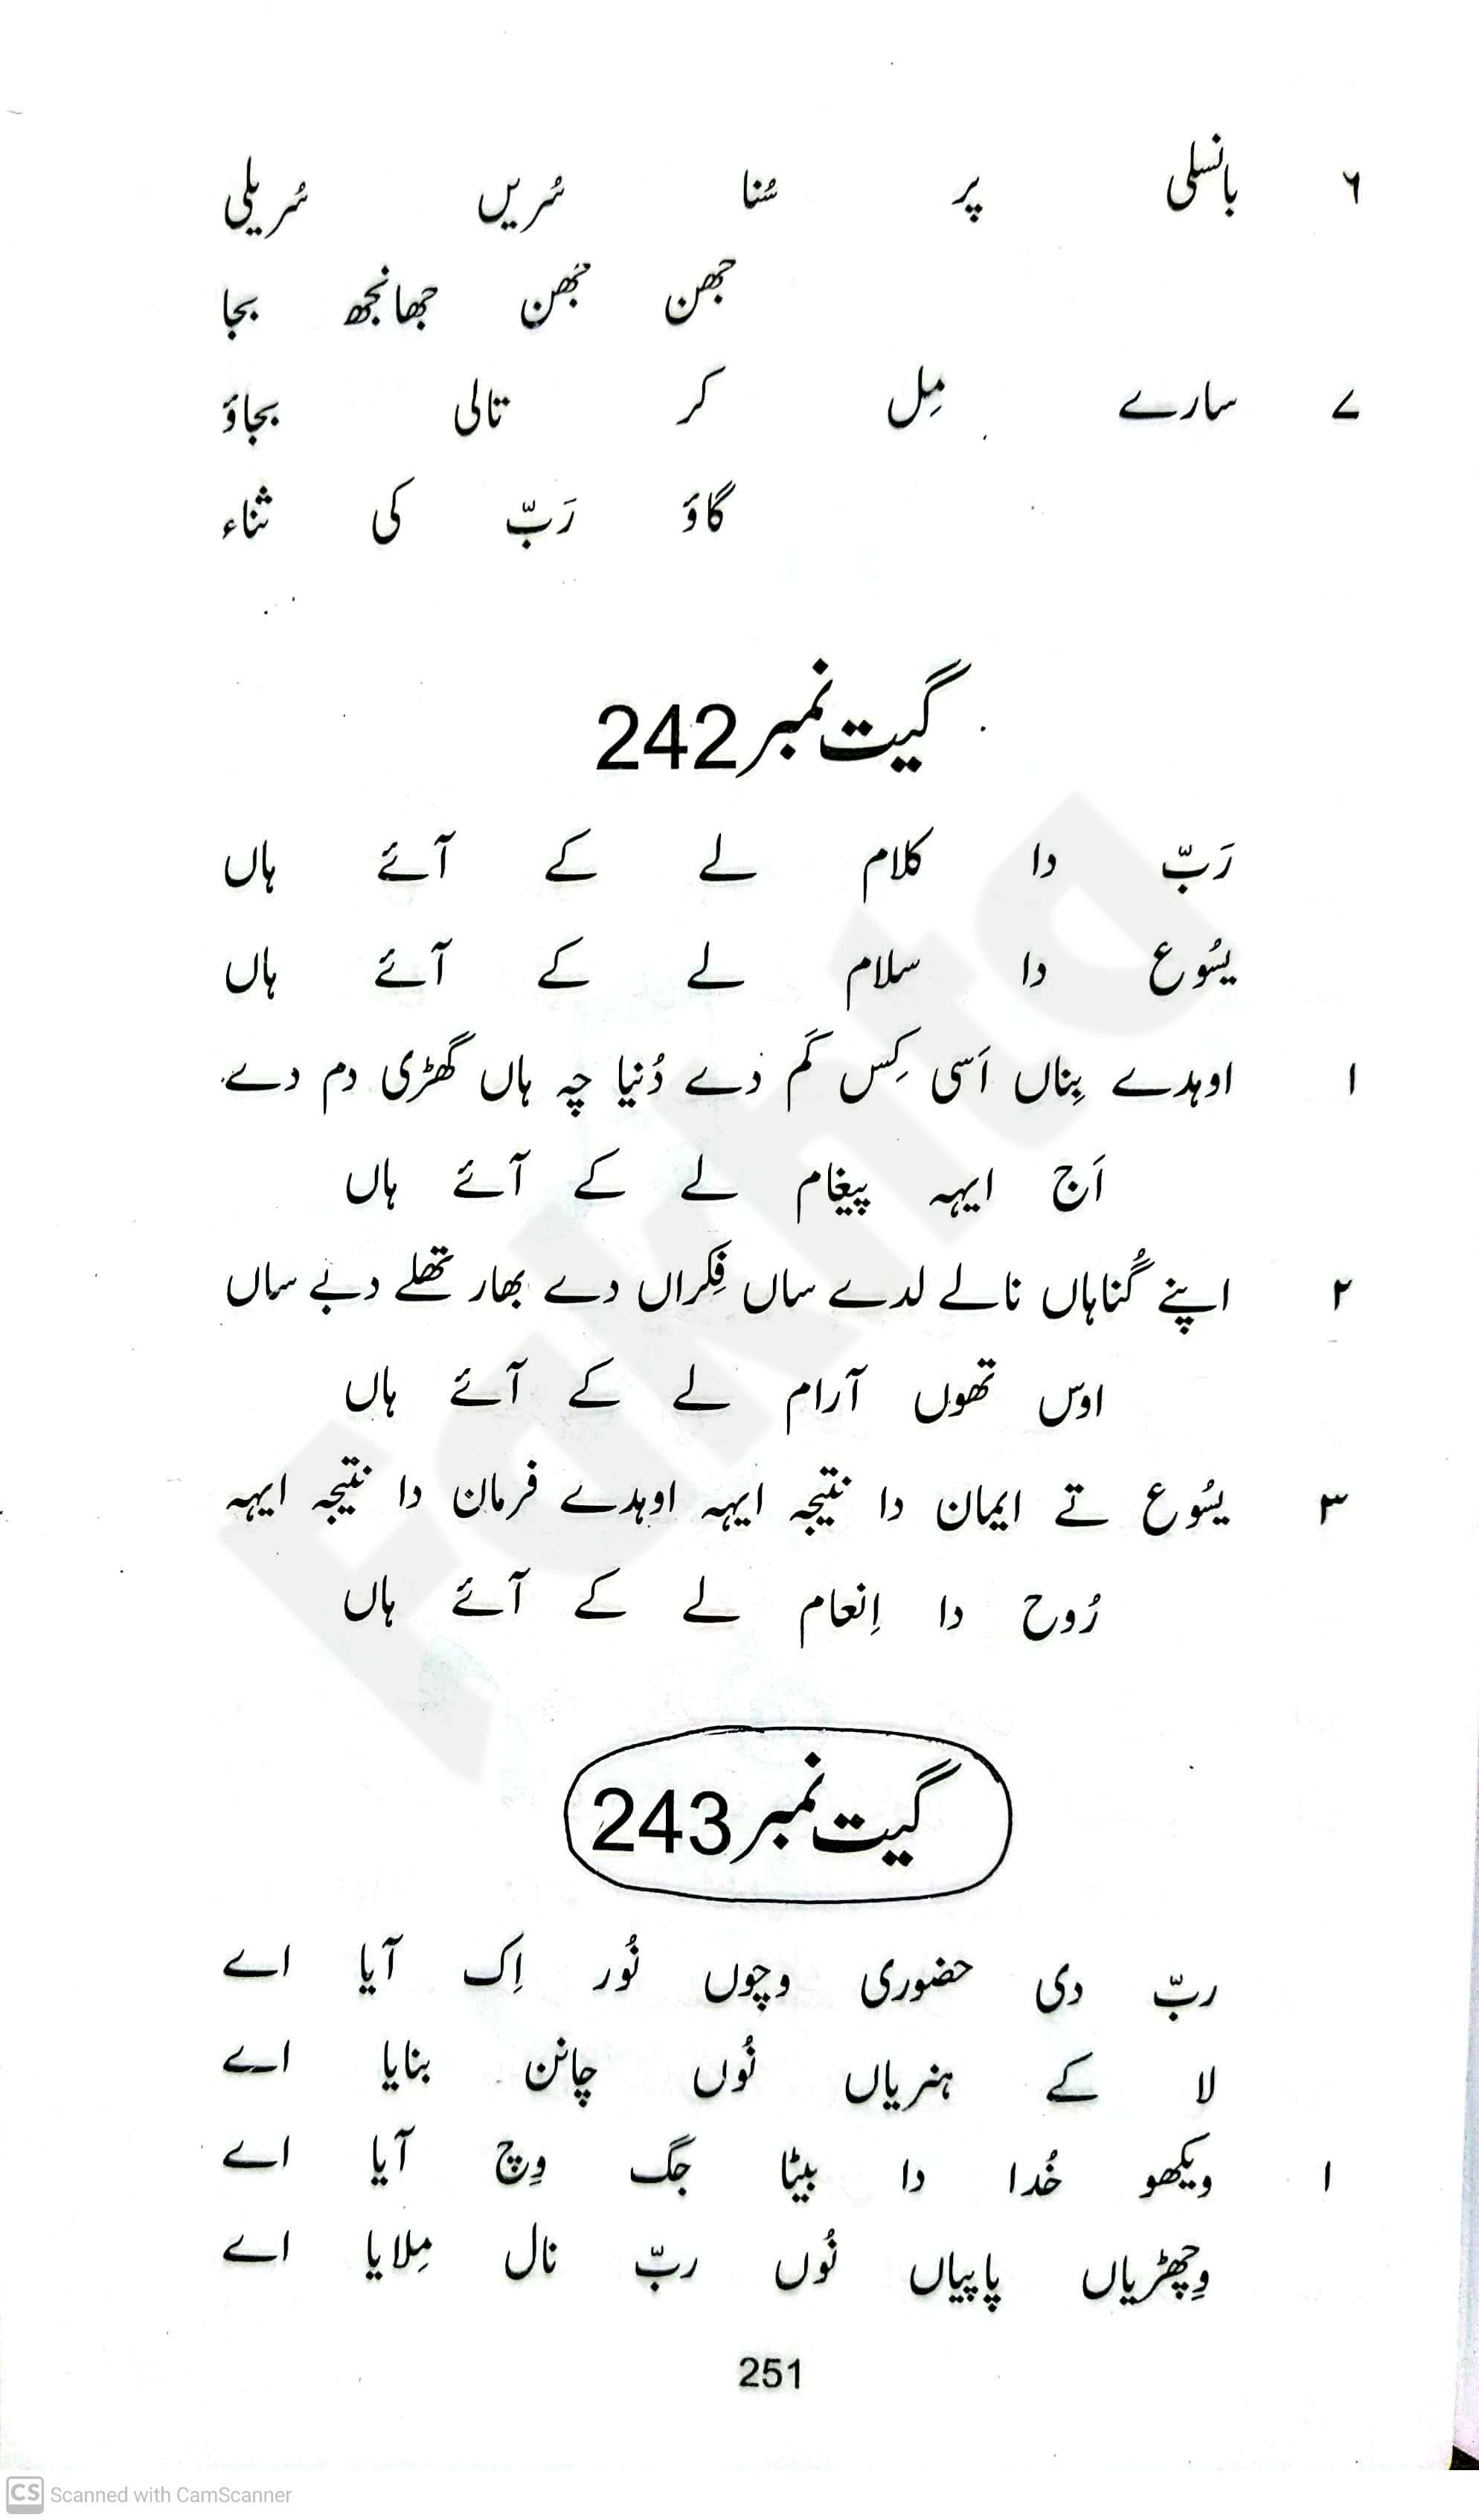 ۶ بانسلی پر سُنا سُریں سُریلی
جھن جھن جھانجھ بجا
۷ سارے مِل کر تالی بجاؤ
گاؤ رَبّ کی ثناء
گیت نمبر 242
رَبّ دا کلام لے کے آئے ہاں
یسُوع دا سلام لے کے آئے ہاں
۱ اوہدے بِناں اَسی کِس کَم دے دُنیا چہ ہاں گھڑی دم دے
اَج ایہہ پیغام لے کے آئے ہاں
۲ اپنے گُناہاں نالے لدے ساں فِکراں دے بھار تھلے دبے ساں
اوس تھوں آرام لے کے آئے ہاں
۳ یسُوع تے ایمان دا نتیجہ ایہہ اوہدے فرمان دا نتیجہ ایہہ
رُوح دا اِنعام لے کے آئے ہاں
گیت نمبر 243
ربّ دی حضوری وچوں نُور اِک آیا اے
لا کے ہنریاں نُوں چانن بنایا اے
۱ ویکھو خُدا دا بیٹا جگ وِچ آیا اے
وِچھڑیاں پاپیاں نُوں ربّ نال مِلایا اے
251
Fakhta
CS Scanned with CamScanner